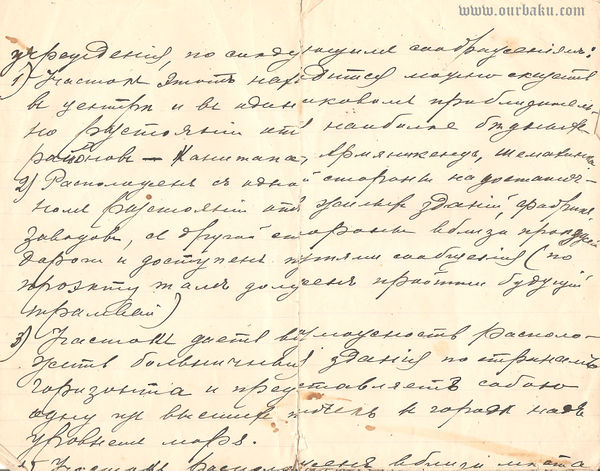 www.ourbaku.com
учрежденія, по слѣдующимъ соображеніямъ:
1) Участокъ этотъ находится можно сказать
въ центрѣ и въ одинаковомъ приблизитель-
но разстояніи отъ наиболѣе бѣдныхъ
районовъ — Канитапа, Арменикендъ, Шемахинка
2) Расположенъ съ одной стороны на достаточ-
номъ разстояніи отъ жилыхъ зданій, фабрикъ,
заводовъ, съ другой стороны вблизи проѣзжей
дороги и доступенъ путями сообщенія (по
проэкту тамъ долженъ пройти будущій
трамвай)
3) Участокъ даетъ возможность располо-
жить больничныя зданія по странамъ
горизонта и представляетъ собою
одну изъ высшихъ точекъ въ городѣ надъ
уровнемъ моря.
Участокъ расположенъ вблизи мѣста